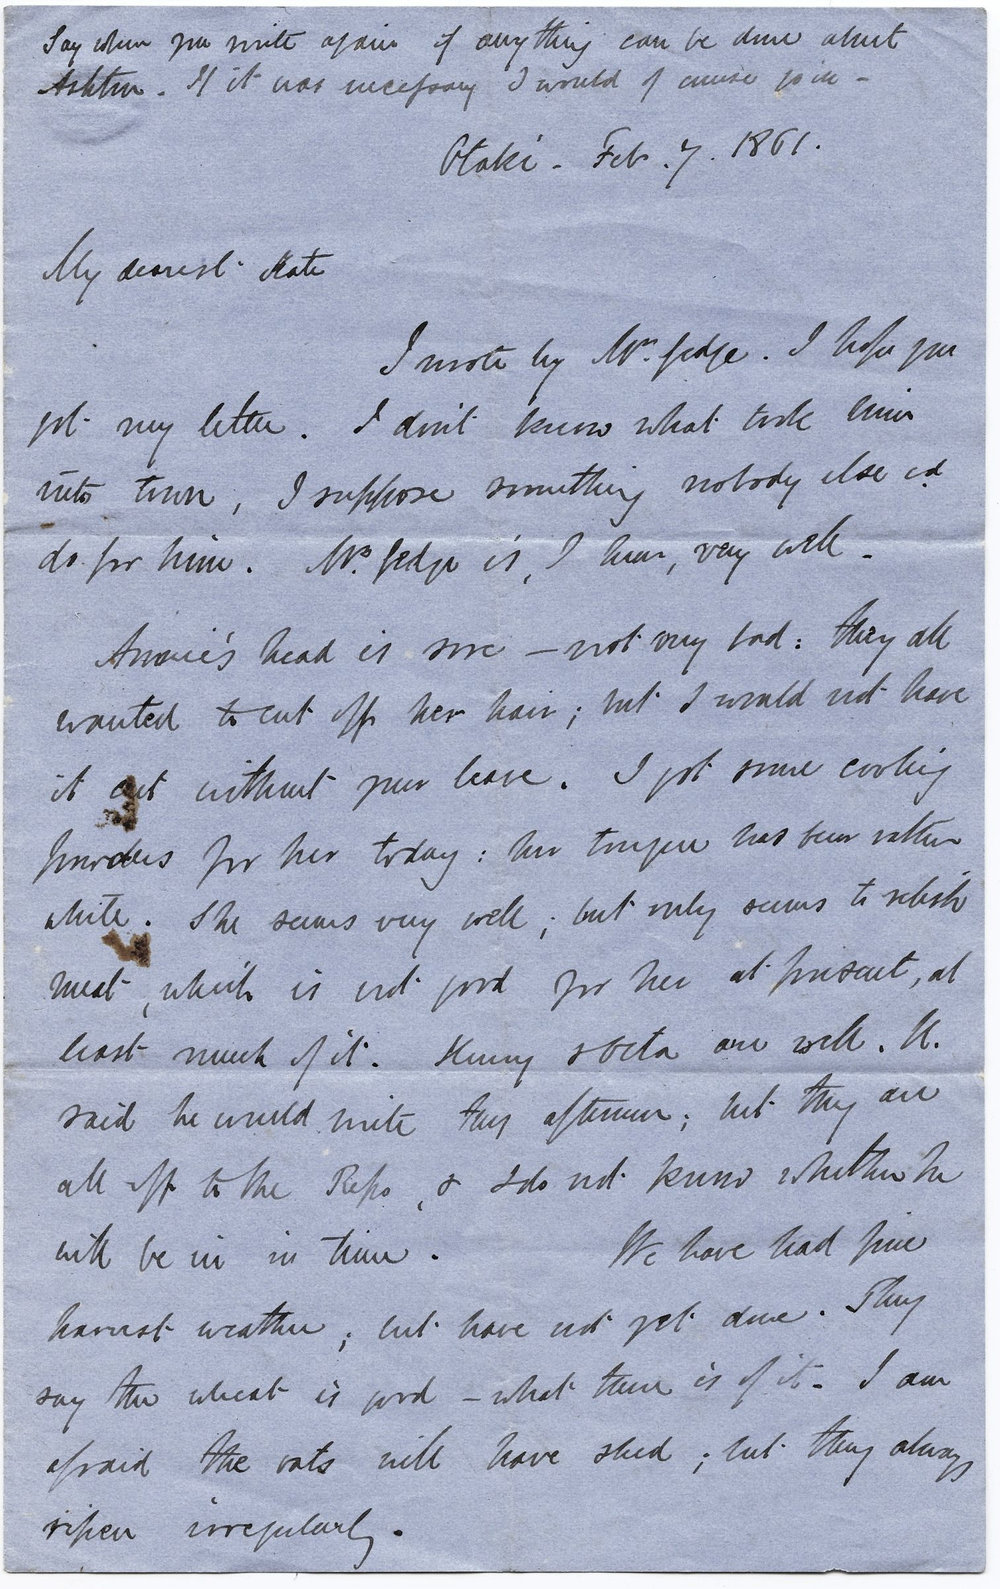 Say when you write again if anything can be done about
Ashton. If it was necessary I would of course join -
Otaki - Feb. 7. 1861.
My dearest Kate
I wrote by Mr. Fedge. I hope you
got my letter. I don't know what took him
into town, I suppose something nobody else cd
do for him. Mrs. Fedge is, I hear, very well -
Annie's head is sore - not very bad: they all
wanted to cut off her hair; but I would not have
it cut without your leave. I got some cooling
powders for her today: her tongue has been rather
white. She seems very well; but only seems to relish
meat, which is not good for her at present, at
least much of it. Henny & Octa are well. H.
said he would write this afternoon; but they are
all off to the Repo, & I do not know whether he
will be in in time. We have had fine
harvest weather; but have not yet done. They
say the wheat is good - what there is of it - I am
afraid the oats will have shed; but they always
ripen irregularly.